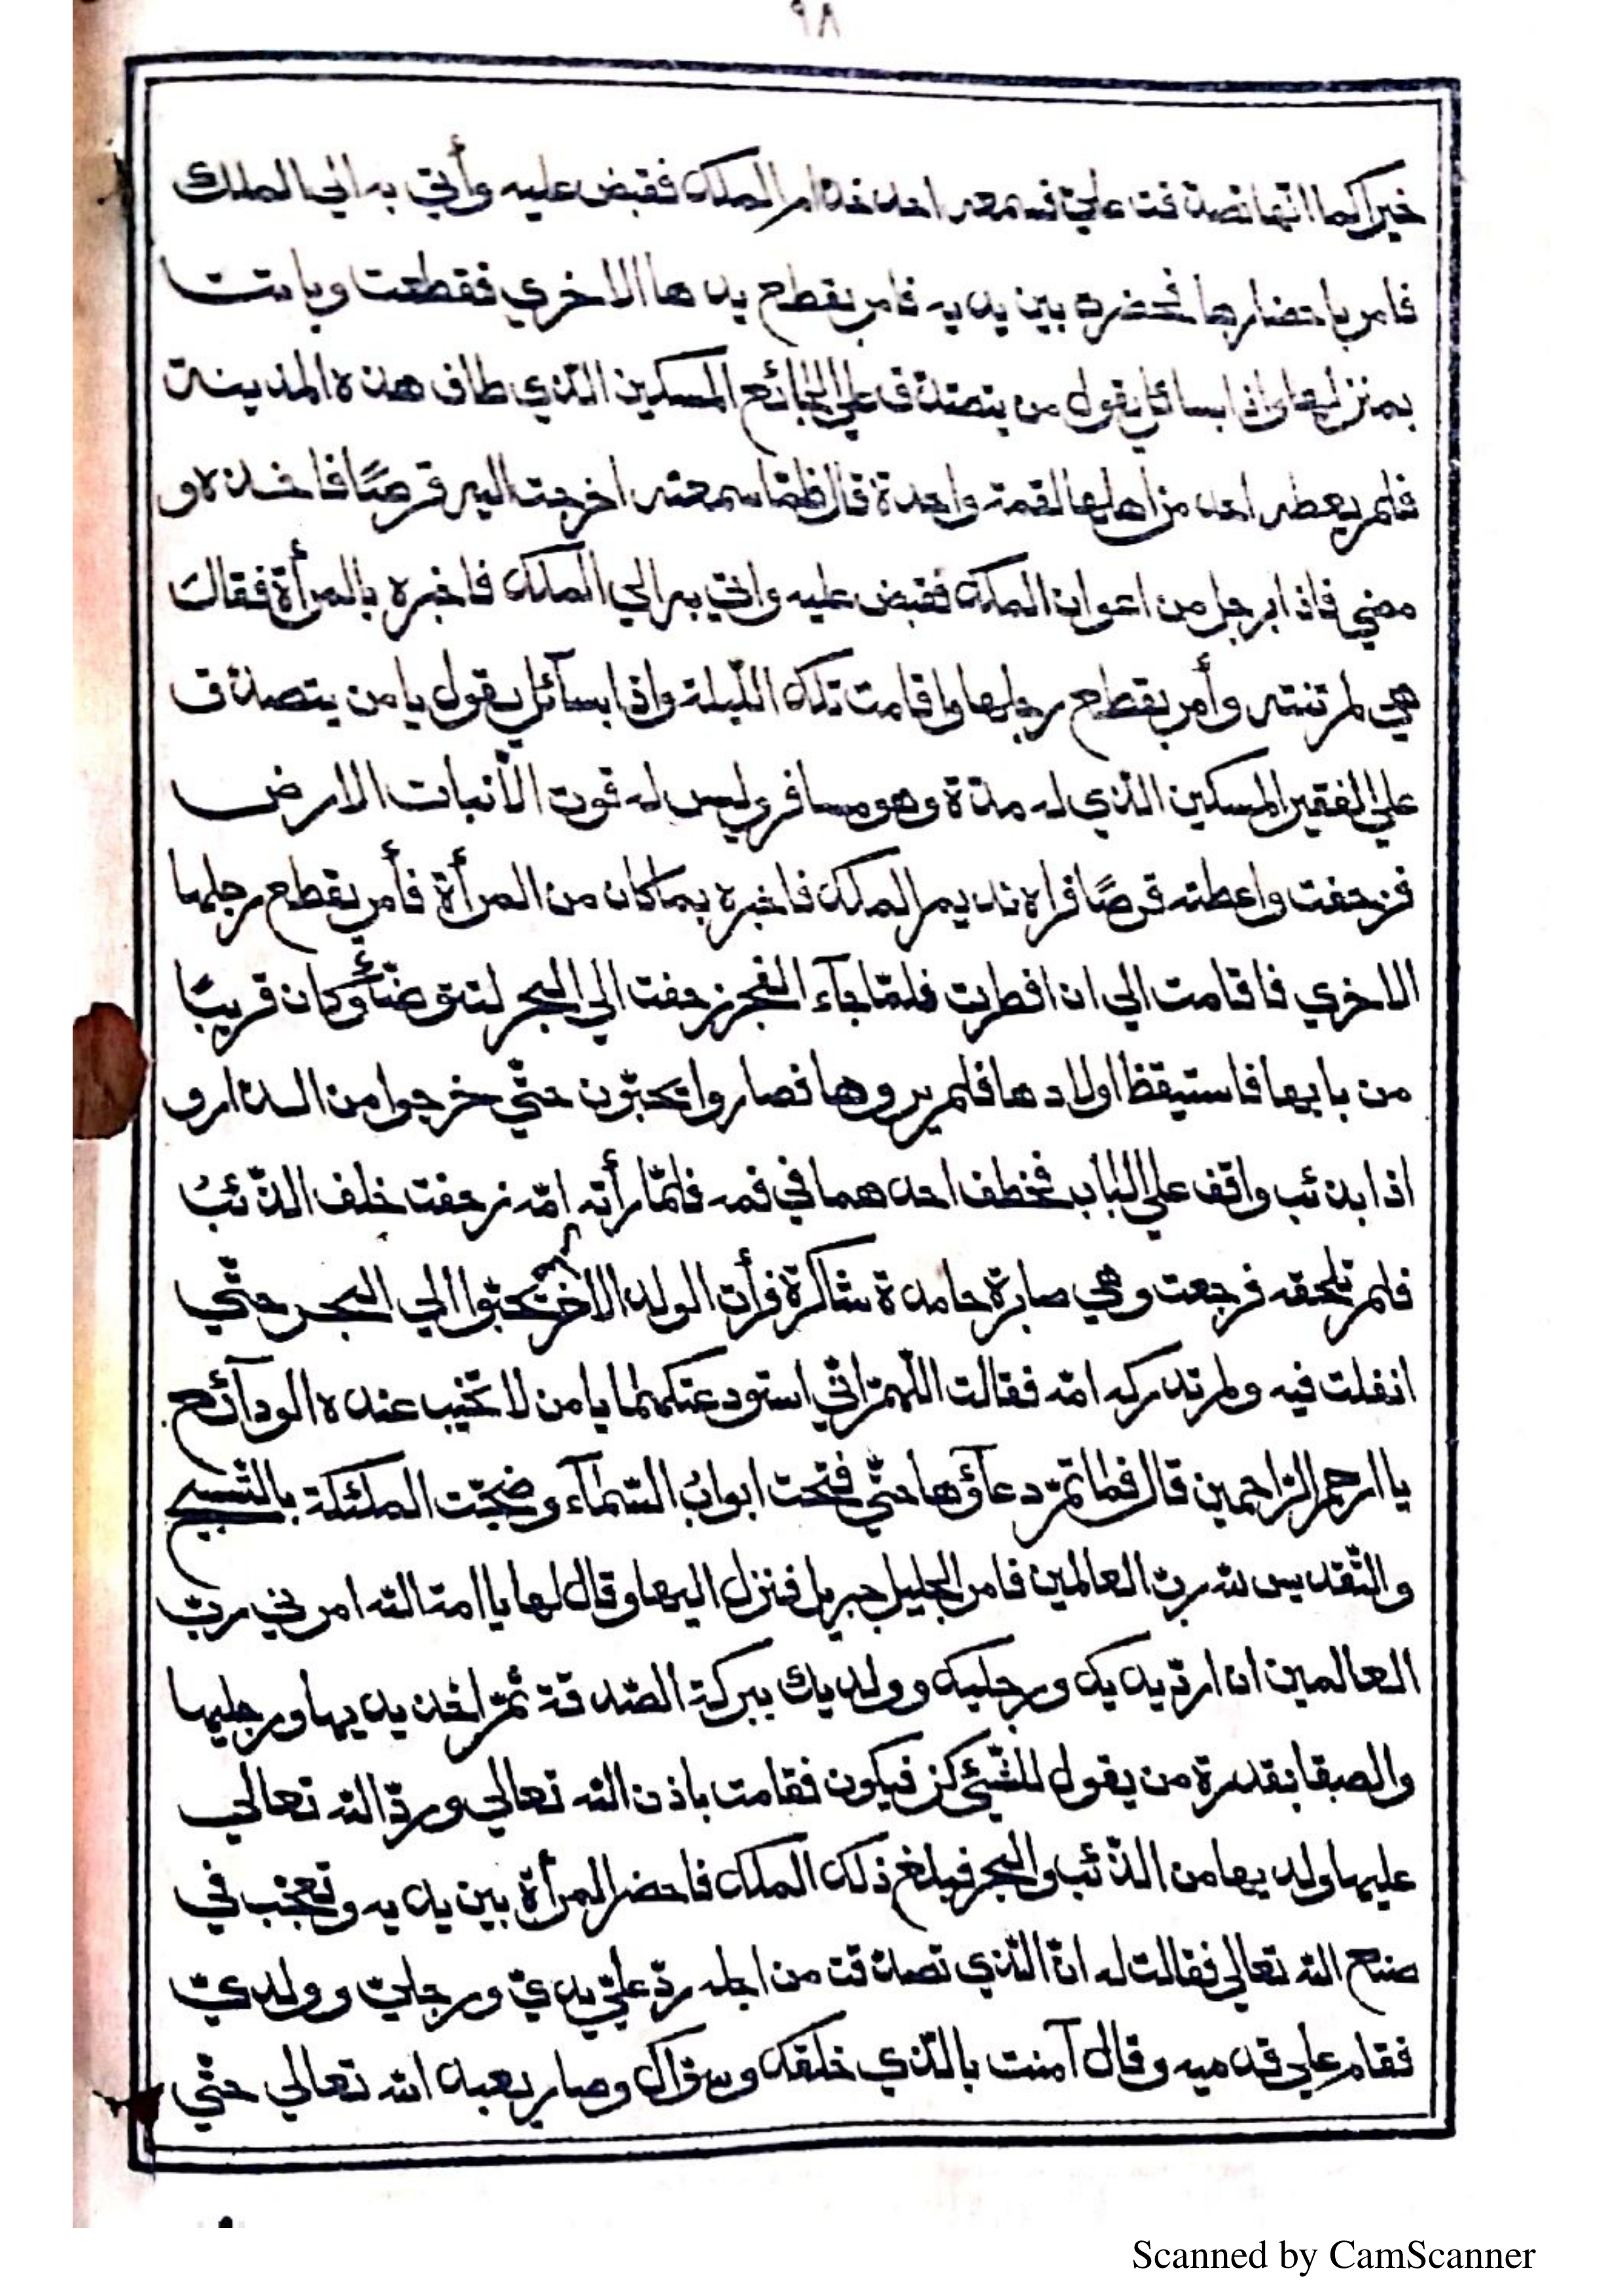 ٩٨
خيرا كما انها تصدقت علي فسمعه احد خدام الملك فقبض عليه وأتي به الي الملك
فامر باحضارها فحضرة بين يديه فامر بقطع يدها الاخري فقطعت وباتت
بمنزلها واذا بسائل يقول من يتصدق علي الجائع المسكين الذي طاف هذه المدينة
فلم يعطه احد من اهلها لقمة واحدة قال فلما سمعته اخرجت اليه قرصًا فاخذه و
مضي فاذا برجل من اعوان الملك فقبض عليه واتي به الي الملك فاخبره بالمرأة فقالت
هي لم تنته وأمر بقطع رجلها واقامت تلك الليلة واذا بسآئل يقول يا من يتصدق
علي الفقير المسكين الذي له مدة وهو مسافر وليس له قوت الا نبات الارض
فزحفت واعطته قرصًا فراه نديم الملك فاخبره بما كان من المرأة فأمر بقطع رجلها
الاخري فاقامت الي ان افطرت فلما جآء الفجر زحفت الي البحر لتتوضأ وكان قريبًا
من بابها فاستيقظ اولادها فلم يروها فصاروا يحبون حتّي خرجوا من الدار و
اذا بذئب واقف علي الباب فخطف احدهما في فمه فلمّا رأته امّه زحفت خلف الذّئبُ
فلم تلحقه فرجعت وهي صابرة حامدة شاكرة فرأت الولد الاخر يحبوا الي البحر حتّي
انفلت فيه ولم تدركه امّه فقالت اللّهمّ انّي استودعتكهما يا من لا تخيب عنده الودآئع
يا ارحم الرّاحمين قال فما تمّ دعآؤها حتّي فتحت ابوابُ السّمآء وضجّت الملئكة بالتّسبيح
والتّقديس لله ربّ العالمين فامر الجليل جبريل فنزل اليها وقال لها يا امة الله امرني ربّ
العالمين ان اردّ يديك ورجليك وولديك ببركة الصّدقة ثمّ اخذ يديها ورجليها
والصقها بقدرة من يقول للشّيئ كن فيكون فقامت باذن الله تعالي وردّ الله تعالي
عليها ولديها من الذّئب والبحر فبلغ ذلك الملك فاحضر المرأة بين يديه وتعجّب في
صنع الله تعالي فقالت له انّ الّذي تصدّقت من اجله ردّ عليّ يديّ ورجليّ وولديّ
فقام علي قدميه وقال آمنت بالّذي خلقك وسوّاك وصار يعبد الله تعالي حتّي
Scanned by CamScanner